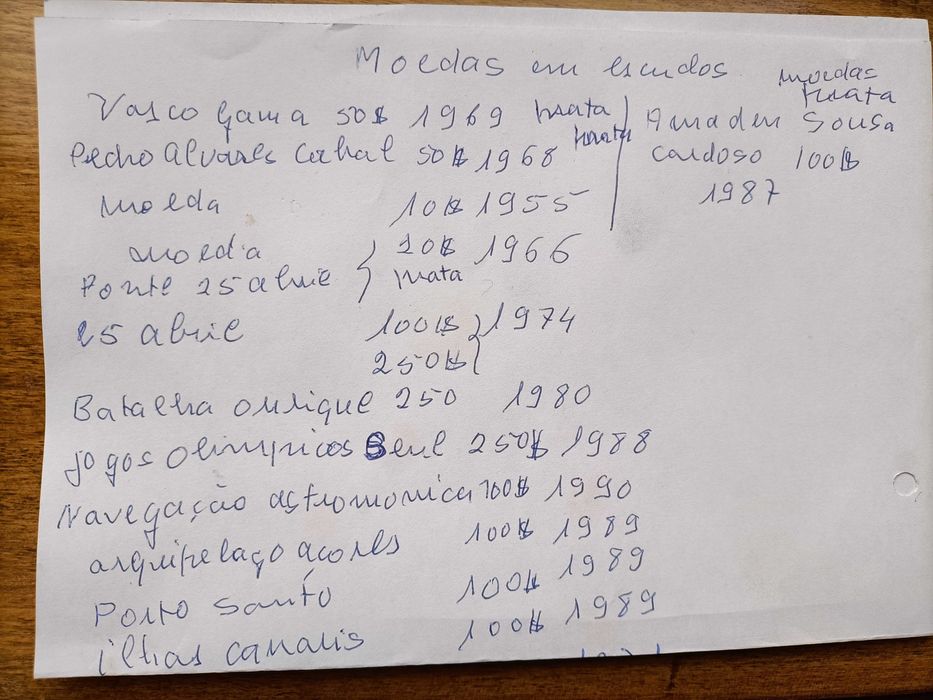 Moedas em escudos
Vasco Gama 50$ 1969 prata
Pedro Alvares Cabral 50$ 1968 prata
moeda 10$ 1955
moeda 20$ 1966
Ponte 25 abril prata
25 abril 100$ 1974
250$
Batalha ourique 250 1980
jogos olimpicos Seul 250$ 1988
Navegação astromonica 100$ 1990
arquipelaço açores 100$ 1989
Porto santo 100$ 1989
ilhas canaris 100$ 1989
moedas
prata
Amadeu Sousa
Cardoso 100$
1987